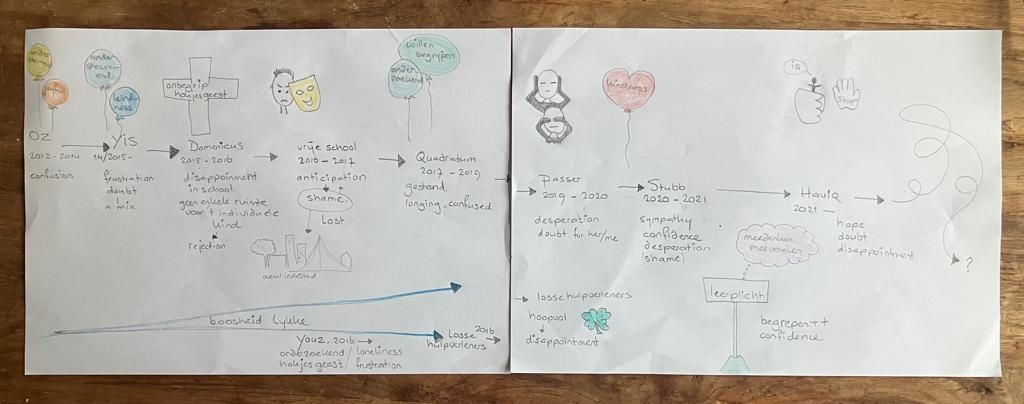 onder
steunend
onder
steun-
end
kind-
ness
onbegrip
hokjesgeest
willen
begrijpen
onder-
zoekend
Oz
2012-2014
confusion
Yis
14/2015-
frustration
doubt
a mix
Domenicus
2015-2016
disappoinment
in school.
geen enkele ruimte
voor 't individuele
kind
rejection
vrije school
2016-2017
anticipation
shame
Lost
overal in de stad
Quadratum
2017-2019
gestand
longing, confused
boosheid Lykke
Losse 2016
hulpverleners
Youz, 2016
onderzoekend/ loneliness
hokjesgeest/ frustration
kindness
Passer
2019-2020
desperation
doubt for her/me
Stubb
2020-2021
sympathy
confidence
desperation
(shame)
IQ
Stop
HaviQ
2021 -
hope
doubt
disappointment
?
meedenken
meevoelen
leerplicht
begrepen ++
confidence
losse hulpverleners
hoopvol
disappointment